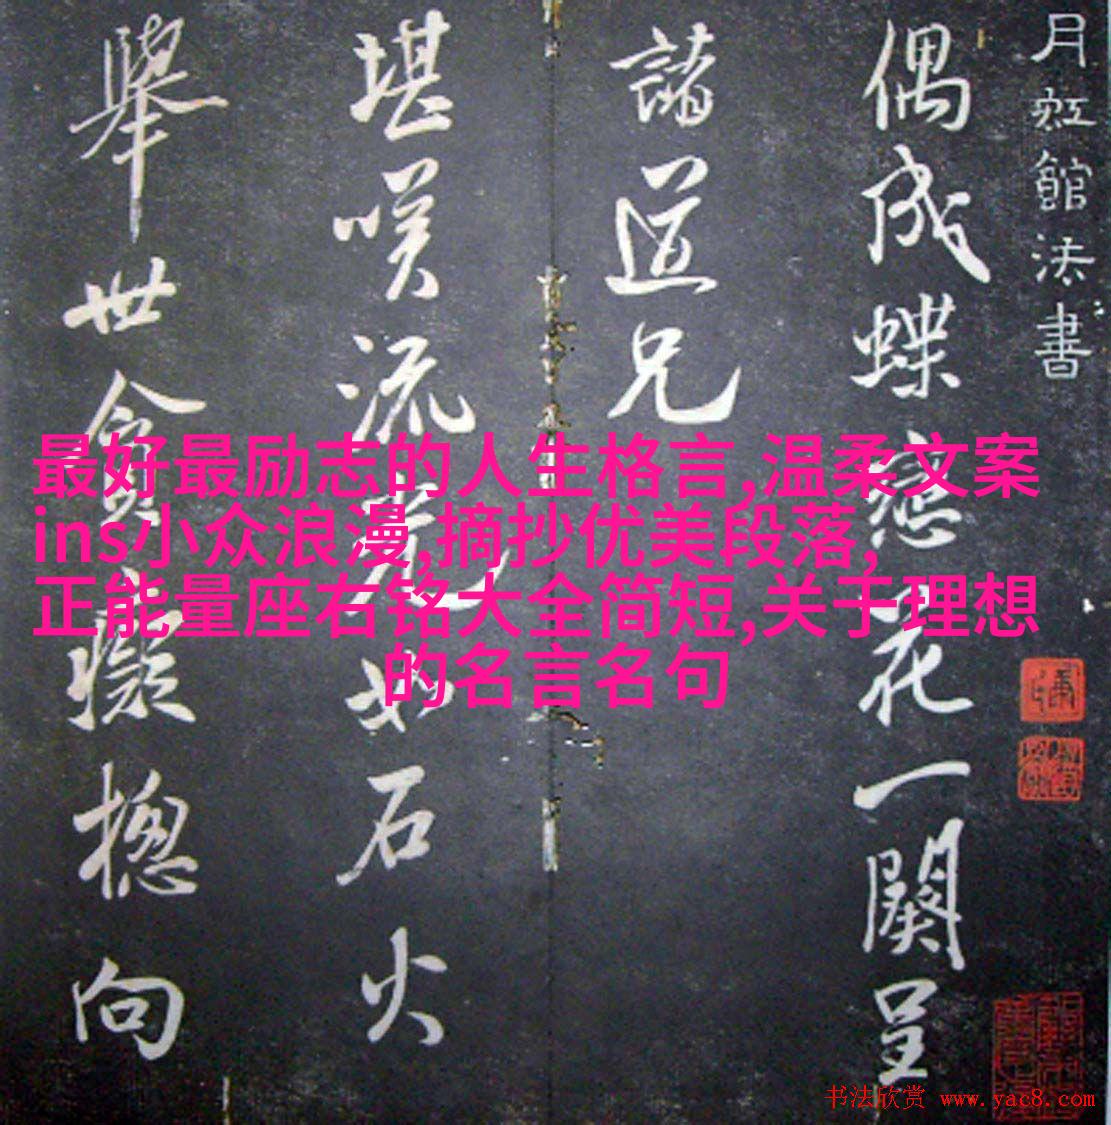 月虹館法書
偶成蝶戀花一闋呈
諸道兄
堪嘆流光如石火
舉世貪癡總向
最好最励志的人生格言,温柔文案
ins小众浪漫,摘抄优美段落,
正能量座右铭大全简短,关于理想
的名言名句
书法欣赏 www.yac8.com